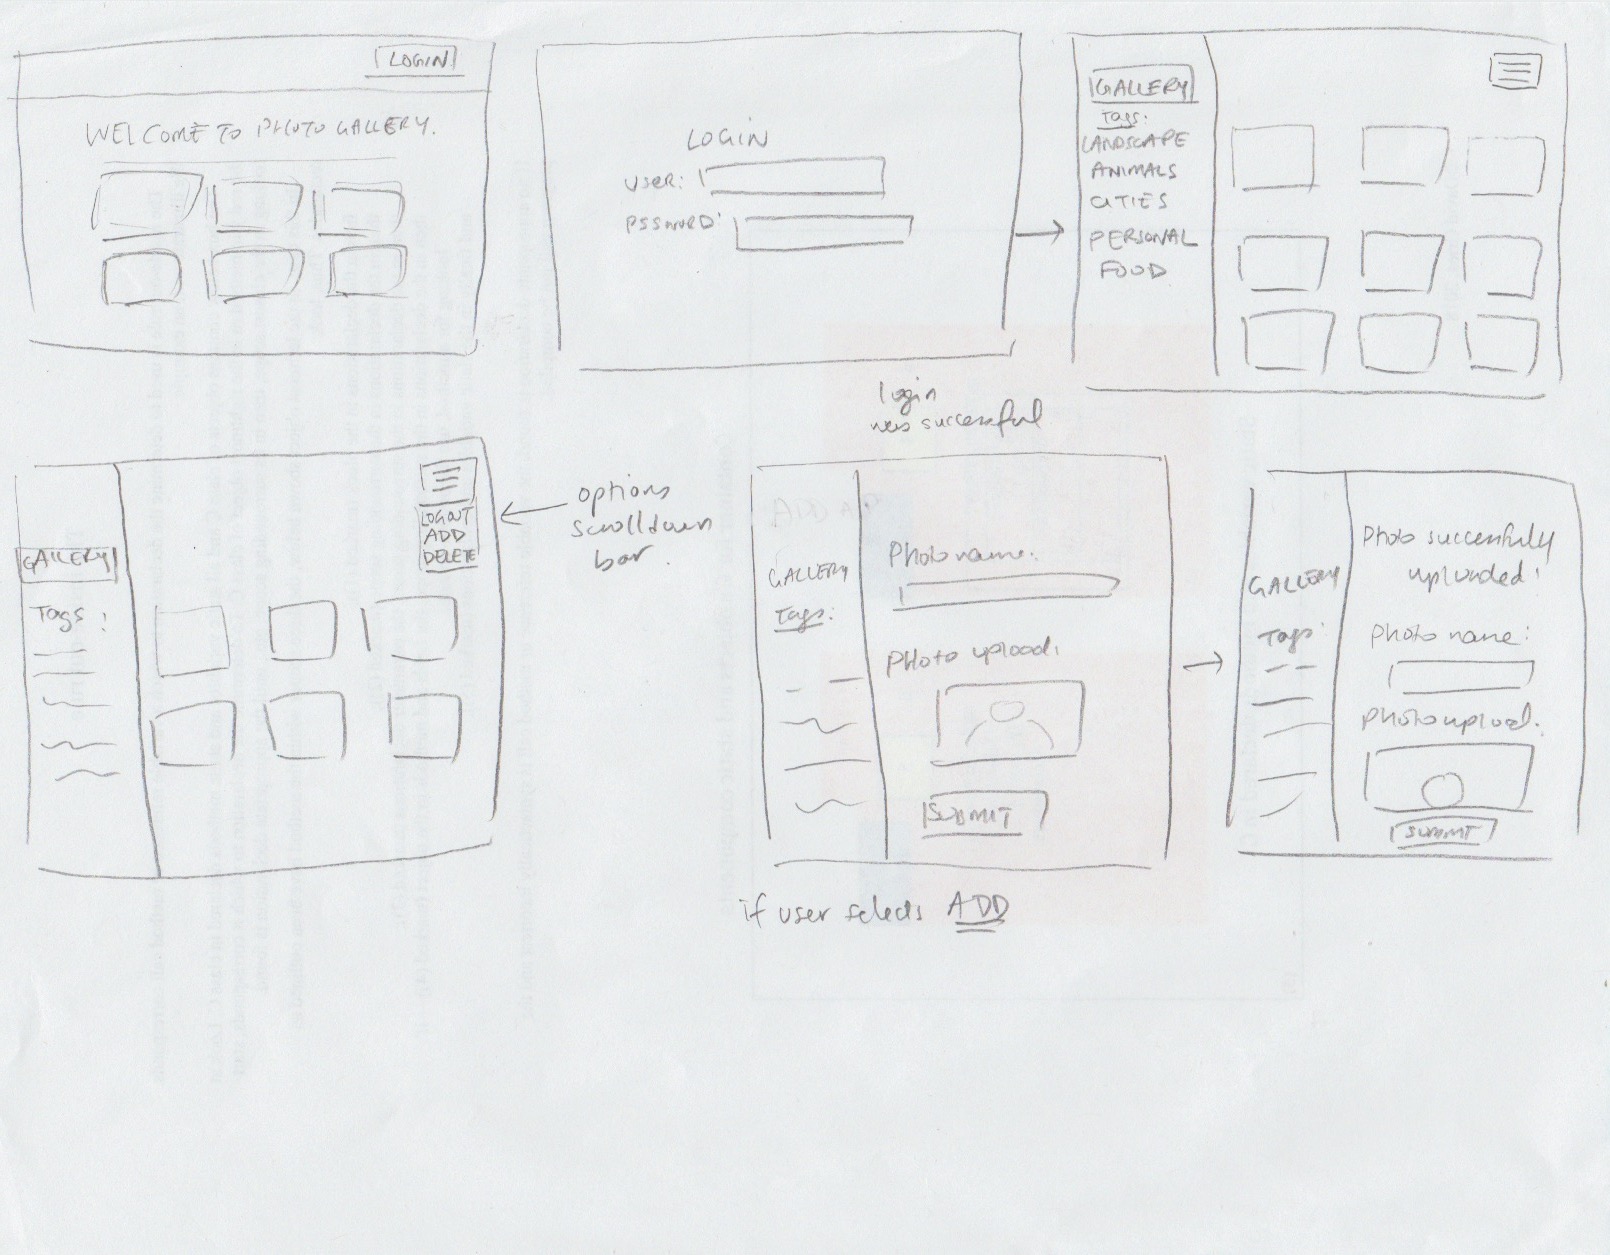 LOGIN
WELCOME TO PHOTO GALLERY.
LOGIN
USER:
PSSWORD:
GALLERY
Tags:
LANDSCAPE
ANIMALS
CITIES
PERSONAL
FOOD
login
was successful
GALLERY
Tags:
LOGOUT
ADD
DELETE
options
scrolldown
bar
GALLERY
Tags:
Photo name:
Photo upload:
SUBMIT
if user selects ADD
GALLERY
Tags:
Photo successfully
uploaded!
Photo name:
Photo upload:
SUBMIT